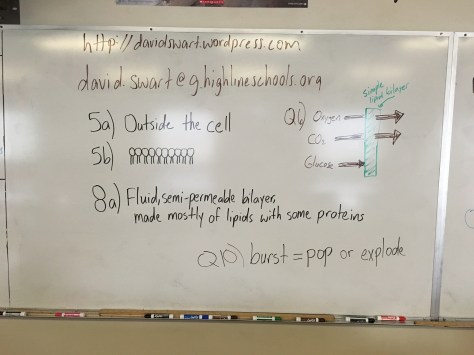 http://davidswart.wordpress.com
david.swart@g.highlineschools.org
5a) Outside the cell
5b)
8a) Fluid, semi-permeable bilayer,
made mostly of lipids with some proteins
Q6) Oxygen
CO₂
Glucose
Simple
lipid bilayer
Q10) burst = pop or explode